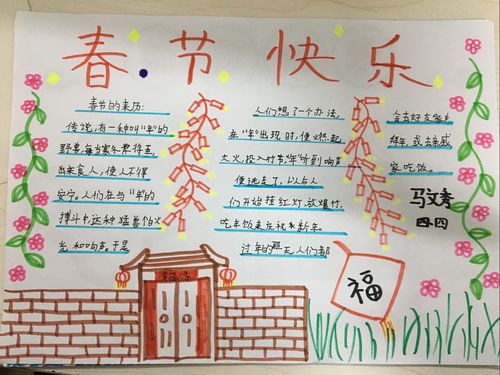 春节快乐
春节的来历:
传说,有一种叫"年"的
野兽,每当寒冬将至,
出来食人,使人不得
安宁。人们在与"年"的
搏斗中,这种猛兽怕火
光和响声。于是
人们想了一个办法,
在"年"出现时,便燃起
大火,投入竹节"年"听到响声
便逃走了,以后人
们开始挂红灯,放爆竹,
吃年饭来庆祝新年。
过年的那天人们都
会去好友家
拜年,或去亲戚
家吃饭。
马文秀
四·四
福